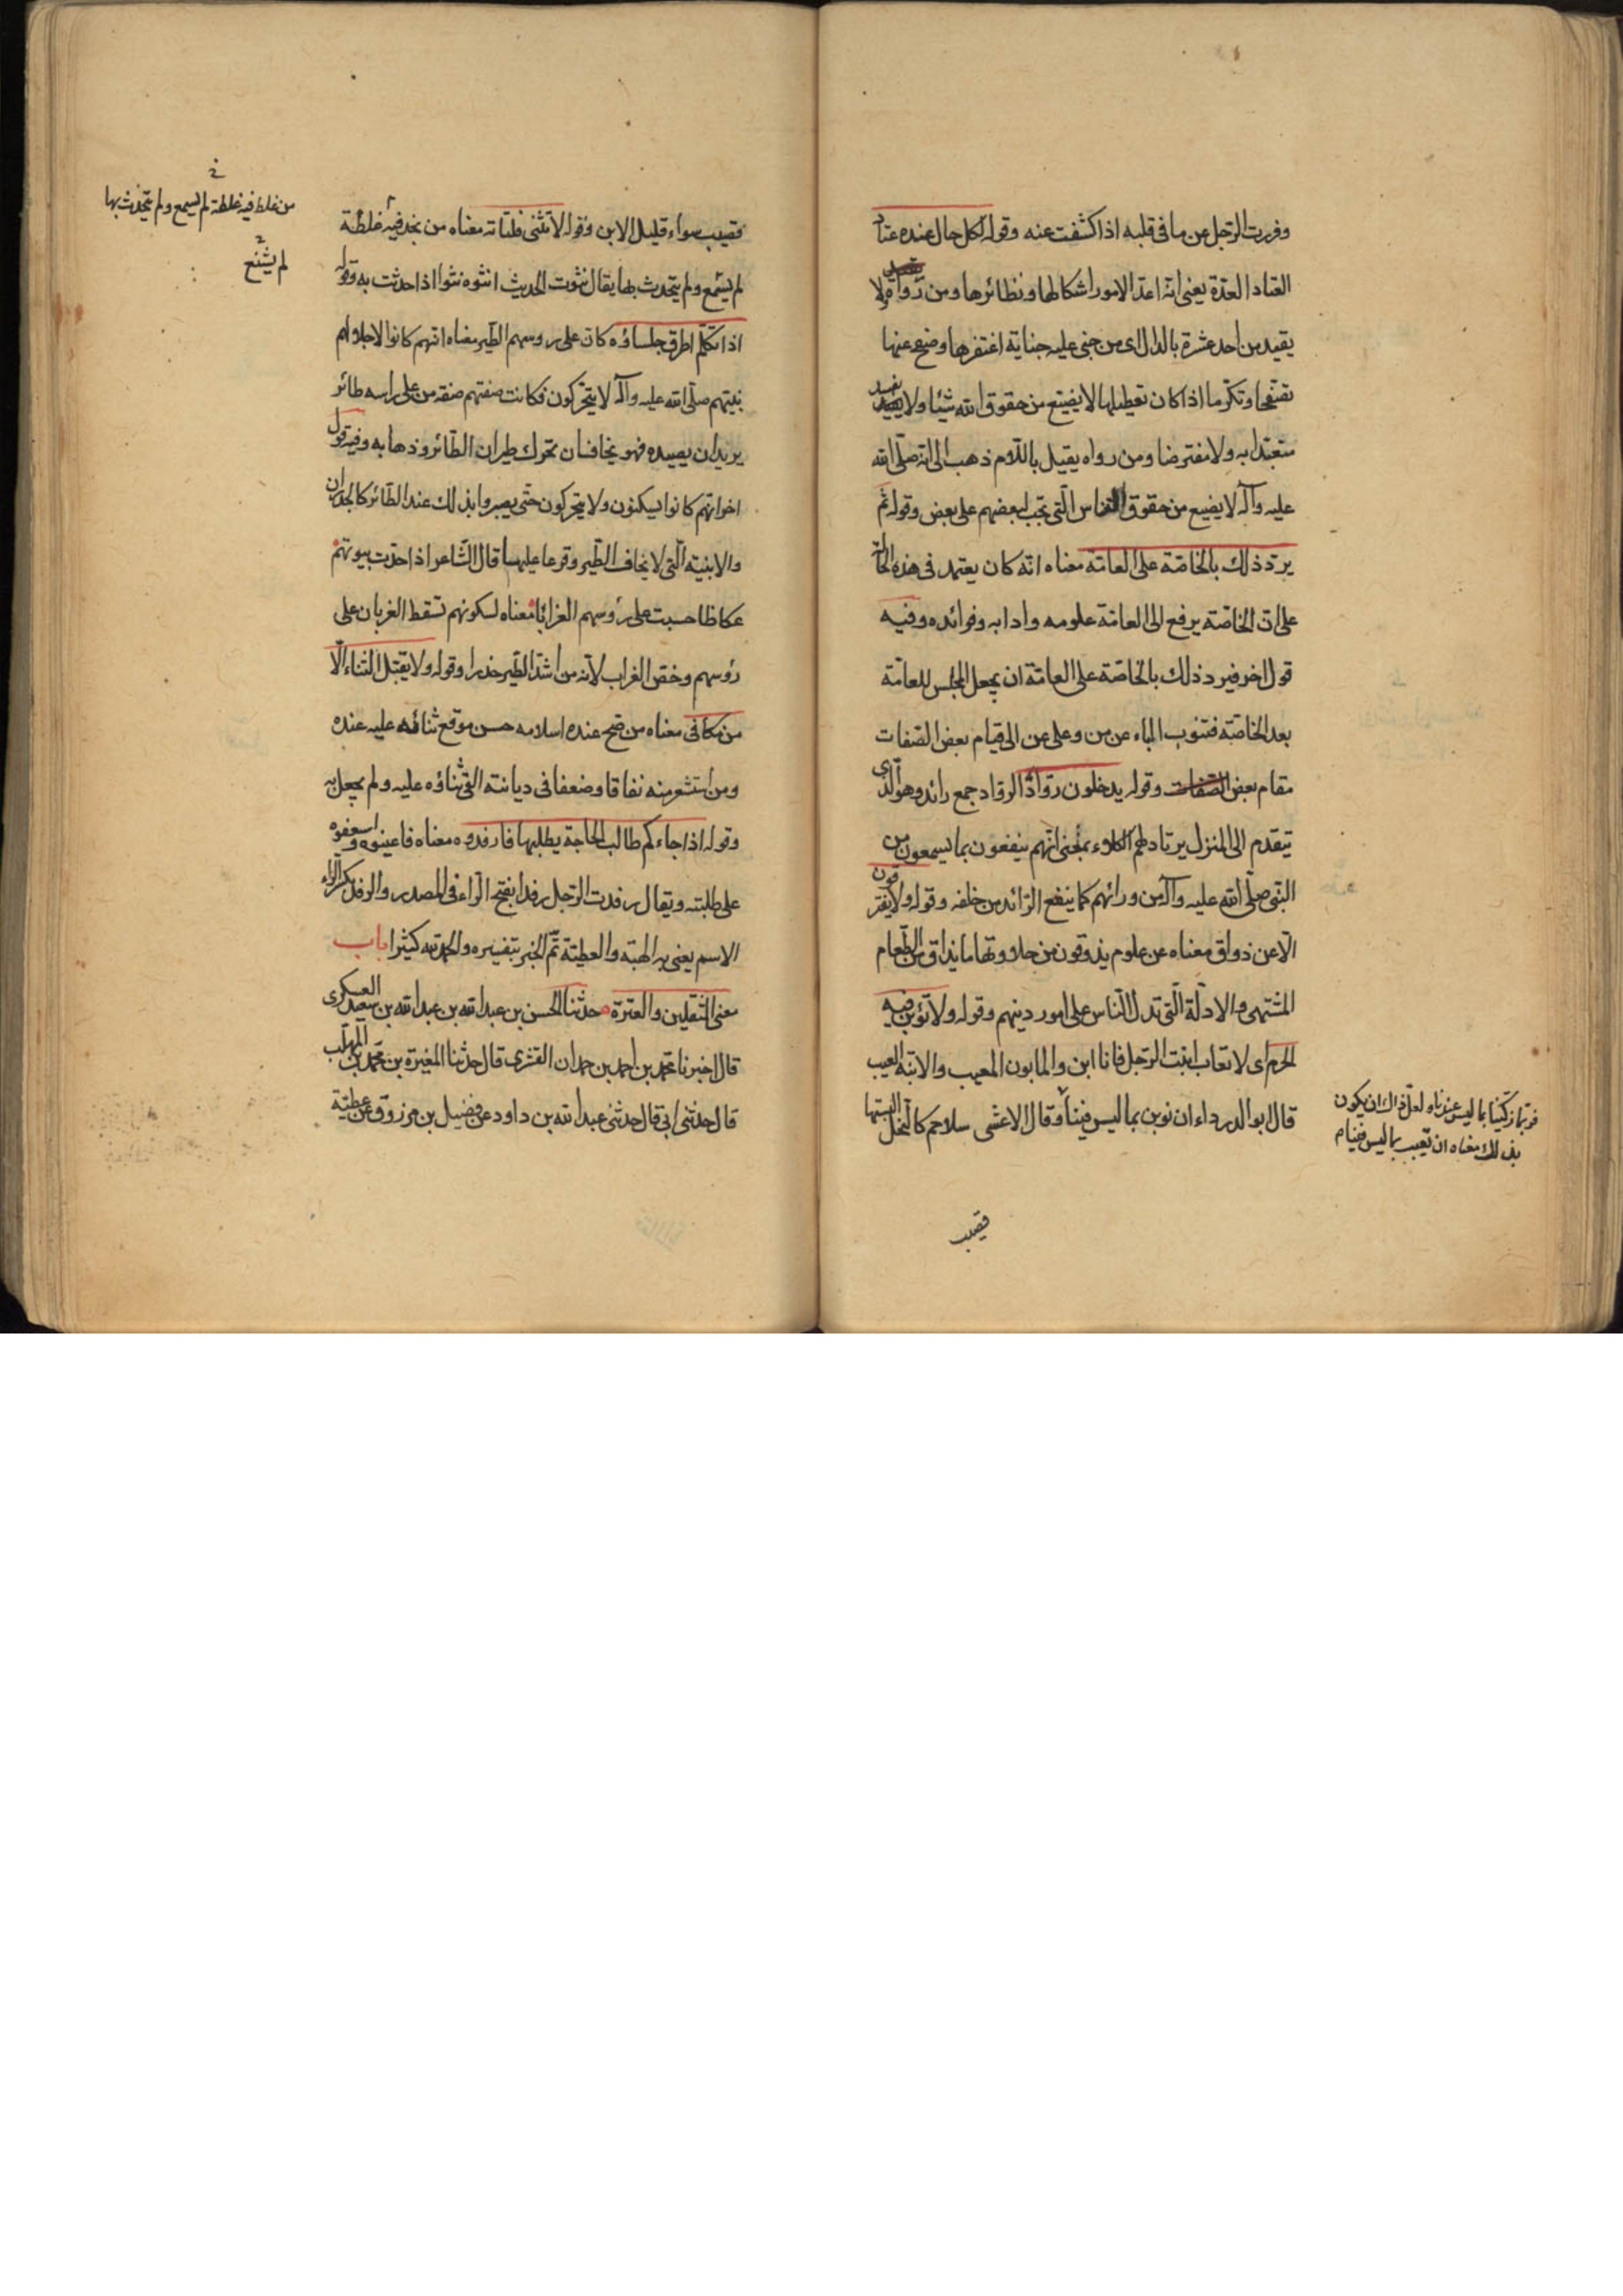 وفررت الرجل عن ما فى قلبه اذا كشفت عنه وقوله لكل حال عنده عتاد
العتاد العدة يعنى انه اعد للامور اشكالها ونظائرها ومن رواه ولا
يقيد من احد عثرة بالدال اى من جنى عليه جناية اغتفرها وصفح عنها
تصفحا وتكرما اذا كان تعطيلها لا يضيع من حقوق الله شيئا ولا يفسد
متعبدا به ولا مفترضا ومن رواه يقيل باللام ذهب الى انه صلى الله
عليه وآله لا يضيع من حقوق الناس التى تجب لبعضهم على بعض وقوله ثم
يرد ذلك بالخاصة على العامة معناه انه كان يعتمد فى هذه الحال
على ان الخاصة يرفع الى العامة علومه وادابه وفوائده وفيه
قول اخر فيرد ذلك بالخاصة على العامة ان يجعل المجلس للعامة
بعد الخاصة فتنوب الباء عن من وعلى عن الى قيام بعض الصفات
مقام بعض الصفات وقوله يدخلون روادا الرواد جمع رائد وهو الذى
يتقدم الى المنزل يرتاد لهم الكلاء يعنى انهم ينفعون بما يسمعون من
النبى صلى الله عليه وآله من ورائهم كما ينفع الرائد من خلفه وقوله ولا يفترقون
الا عن ذواق معناه عن علوم يذوقون من حلاوتها ما يذاق من الطعام
المشتهى والادلة التى تدل الناس على امور دينهم وقوله ولا تؤبن فيه
الحرم اى لا تعاب ابنت الرجل فانا ابن والمابون المعيب والابنة العيب
قال ابو الدرداء ان نوبن بما ليس فينا وقال الاعشى سلاجم كالنخل البستها
فربما زكينا بما ليس عندنا ولعل ذاك ان يكون
بذلك معناه ان نعيب بما ليس فينا م
قضيب
قضيب سراء قليل الابن وقوله لا تنثى فلتاته معناه من غلط فيه غلطة
لم يشنع ولم يتحدث بها يقال نثوت الحديث انثوه نثوا اذا حدثت به وقوله
اذا تكلم اطرق جلساؤه كان على روسهم الطير معناه انهم كانوا لاجلالهم
نبيهم صلى الله عليه وآله لا يتحركون فكانت صفتهم صفة من على راسه طائر
يريد ان يصيده فهو يخاف ان تحرك طيران الطائر وذهابه وفيه قول
اخر انهم كانوا يسكنون ولا يتحركون حتى يصيروا بذلك عند الطائر كالجدران
والابنية التى لا يخاف الطير وقوعا عليها قال الشاعر اذا حلت بيوتهم
عكاظا حسبت على رؤسهم الغرابا معناه لسكونهم تسقط الغربان على
رؤسهم وخص الغراب لانه من اشد الطير حذرا وقوله ولا يقبل الثناء الا
من مكافى معناه من صح عنده اسلامه حسن موقع ثنائه عليه عنده
ومن استشعر منه نفاقا وضعفا فى ديانته القى ثناؤه عليه ولم يجعل به
وقوله اذا جاءكم طالب الحاجة يطلبها فارفدوه معناه فاعينوه واسعفوه
على طلبته ويقال رفدت الرجل رفدا بفتح الراء فى المصدر والرفد بكسر الراء
الاسم يعنى به الهبة والعطية تم الخبر بتفسيره والحمد لله كثيرا باب
معنى الثقلين والعترة حدثنا الحسن بن عبدالله بن عبدالله بن سعيد العسكرى
قال اخبرنا محمد بن احمد بن حمدان القشرى قال حدثنا المغيرة بن محمد بن المهلب
قال حدثنى ابى قال حدثنى عبدالله بن داود عن فضيل بن مرزوق عن عطية
من غلط فيه غلطة لم يسمع ولم يتحدث بها
لم يشنع